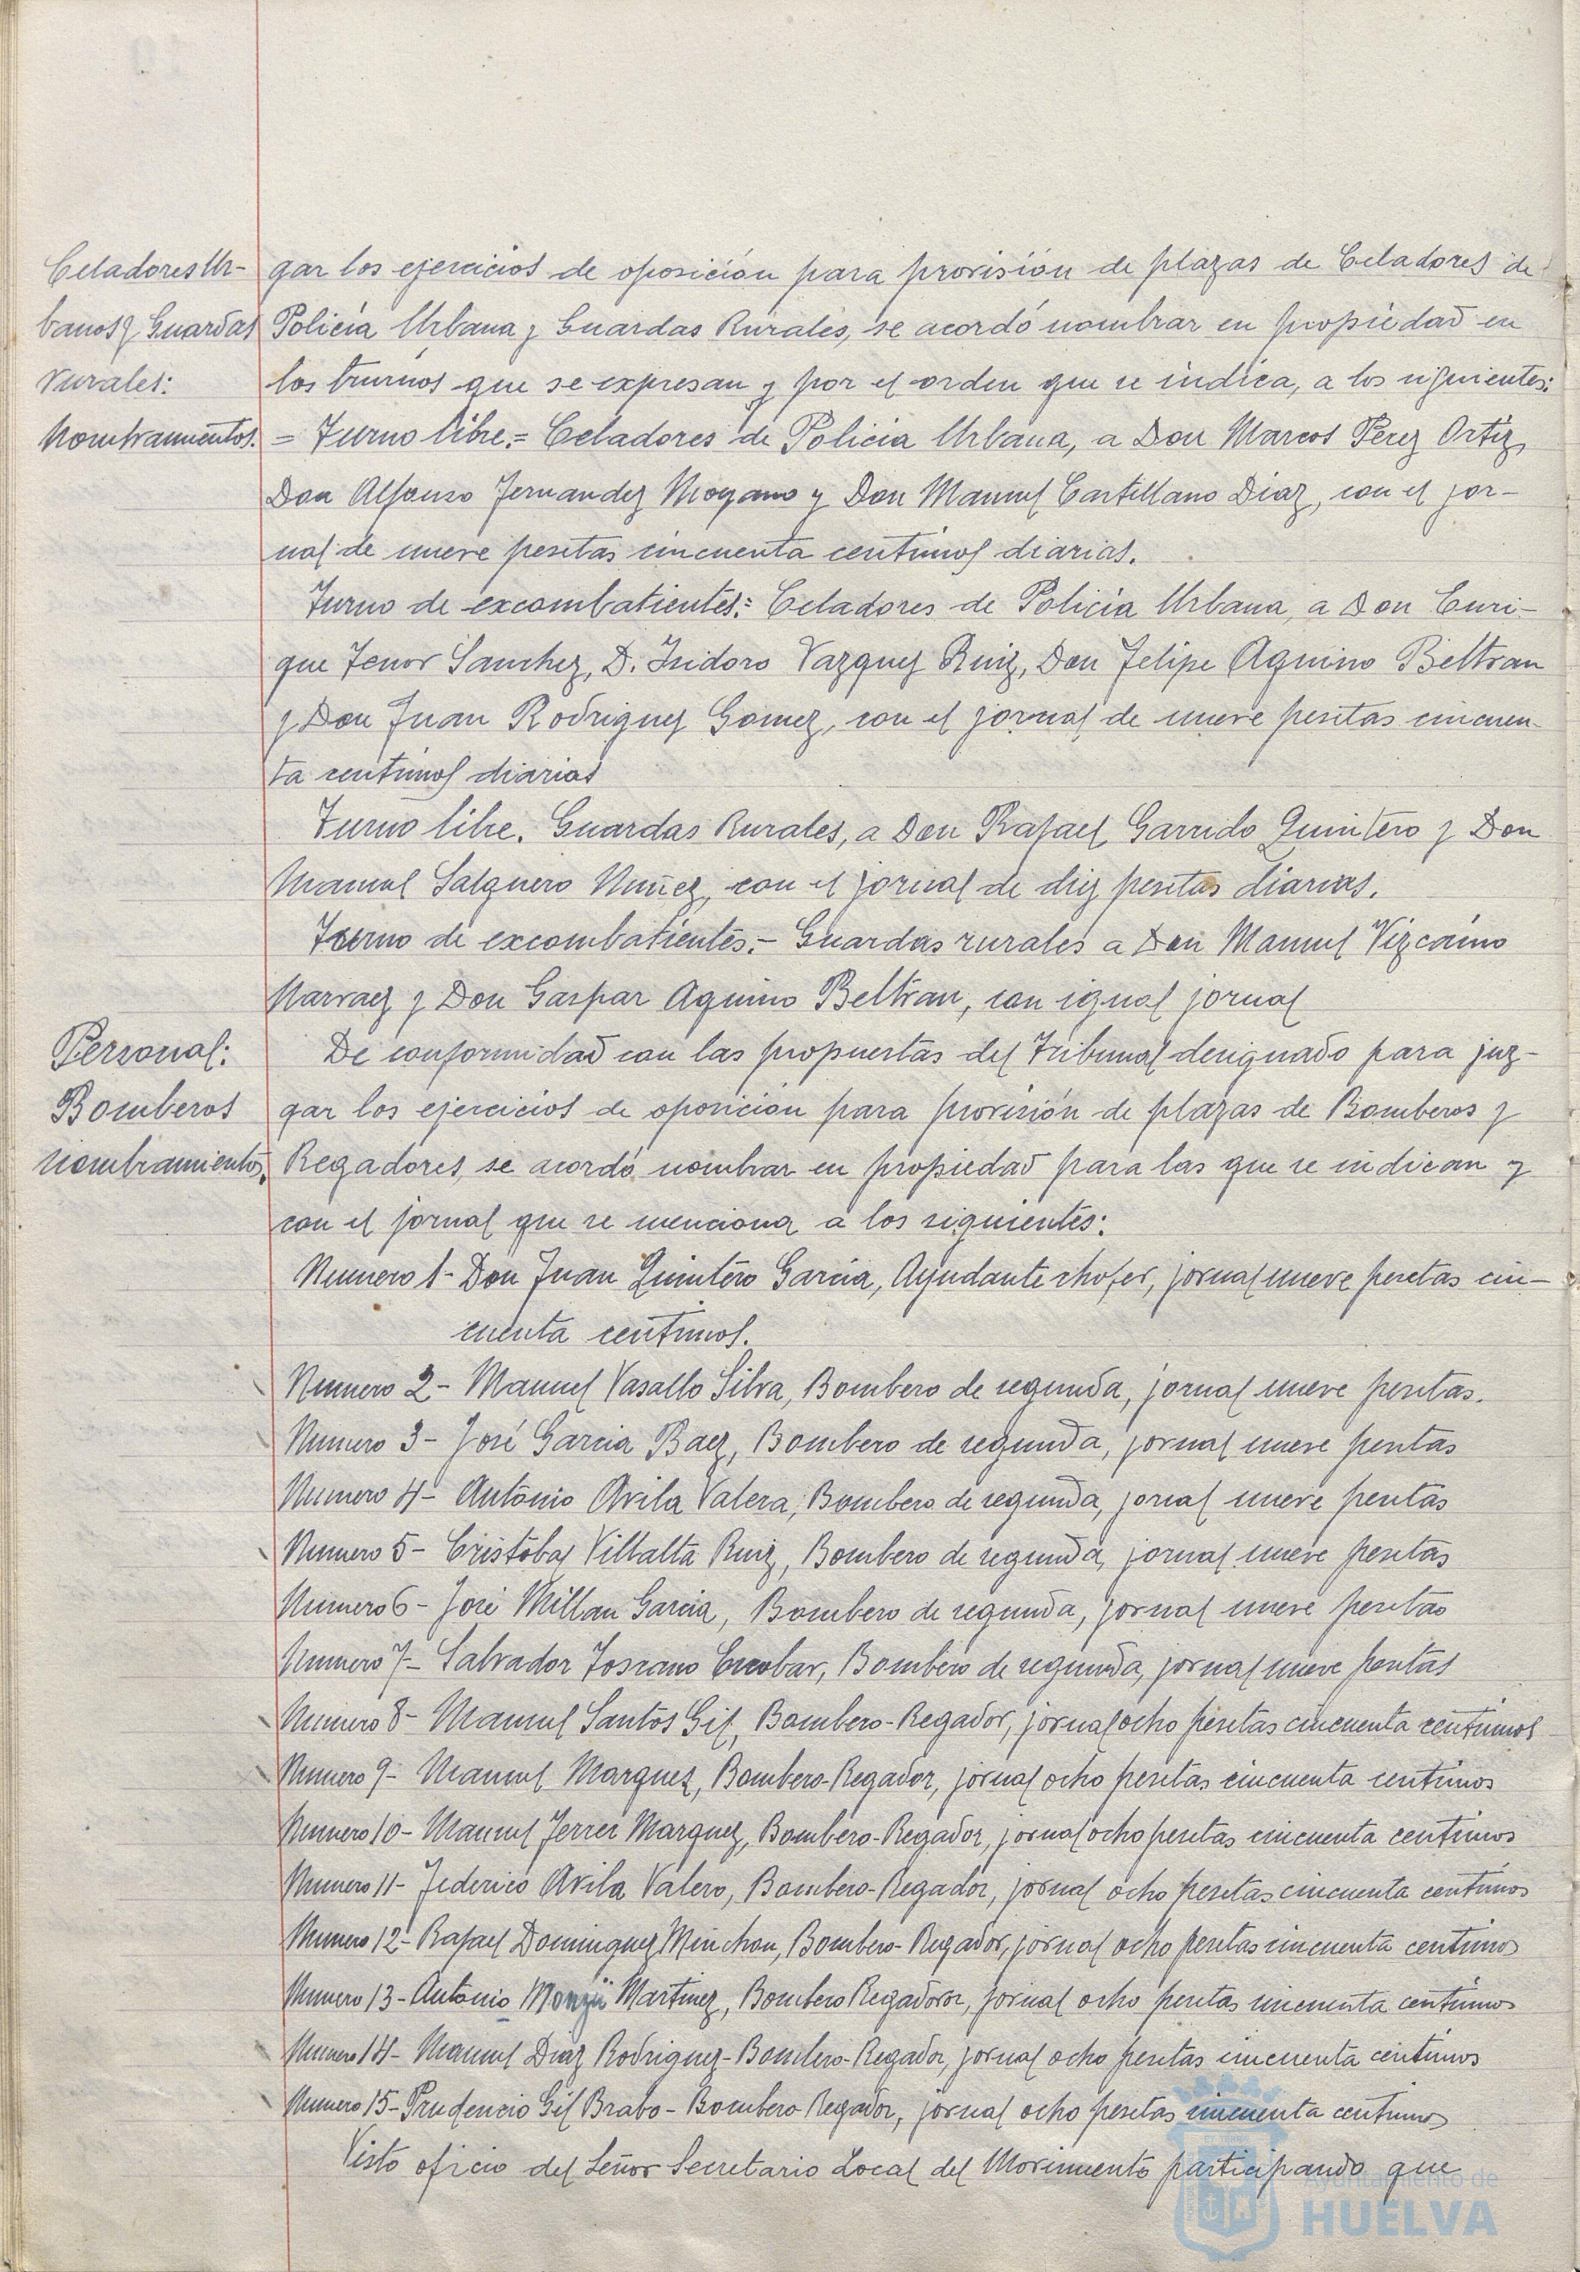 Celadores Ur-
banos y Guardas
rurales:
Nombramientos.
gar los ejercicios de oposición para provisión de plazas de Celadores de
Policía Urbana y Guardas Rurales, se acordó nombrar en propiedad en
los turnos que se expresan y por el orden que se indica, a los siguientes:
= Turno libre.= Celadores de Policia Urbana, a Don Marcos Perez Ortiz,
Don Alfonso Fernandez Moyano y Don Manuel Castellano Diaz, con el jor-
nal de nueve pesetas cincuenta centimos diarias.
Turno de excombatientes:= Celadores de Policia Urbana, a Don Enri-
que Tenor Sanchez, D. Isidoro Vazquez Ruiz, Don Felipe Aquino Beltran
y Don Juan Rodriguez Gomez, con el jornal de nueve pesetas cincuen-
ta centimos diarias
Turno libre. Guardas Rurales, a Don Rafael Garrido Quintero y Don
Manuel Salguero Nuñez, con el jornal de diez pesetas diarias.
Turno de excombatientes.- Guardas rurales a Don Manuel Vizcaino
Narvaez y Don Gaspar Aquino Beltran, con igual jornal
Personal:
Bomberos
nombramientos.
De conformidad con las propuestas del Tribunal designado para juz-
gar los ejercicios de oposición para provisión de plazas de Bomberos y
Regadores, se acordó nombrar en propiedad para las que se indican y
con el jornal que se menciona a los siguientes:
Numero 1- Don Juan Quintero Garcia, Ayudante chofer, jornal nueve pesetas cin-
cuenta centimos.
Numero 2- Manuel Vasallo Silva, Bombero de segunda, jornal nueve pesetas.
Numero 3- José Garcia Baez, Bombero de segunda, jornal nueve pesetas
Numero 4- Antonio Avila Valera, Bombero de segunda, jornal nueve pesetas
Numero 5- Cristobal Villalta Ruiz, Bombero de segunda, jornal nueve pesetas
Numero 6- José Millan Garcia, Bombero de segunda, jornal nueve pesetas
Numero 7- Salvador Toscano Escobar, Bombero de segunda, jornal nueve pesetas
Numero 8- Manuel Santos Gil, Bombero-Regador, jornal ocho pesetas cincuenta centimos
Numero 9- Manuel Marquez, Bombero-Regador, jornal ocho pesetas cincuenta centimos
Numero 10- Manuel Ferrer Marquez, Bombero-Regador, jornal ocho pesetas cincuenta centimos
Numero 11- Federico Avila Valero, Bombero-Regador, jornal ocho pesetas cincuenta centimos
Numero 12- Rafael Dominguez Minchon, Bombero-Regador, jornal ocho pesetas cincuenta centimos
Numero 13- Antonio Martinez, Bombero Regador, jornal ocho pesetas cincuenta centimos
Numero 14- Manuel Diaz Rodriguez- Bombero-Regador, jornal ocho pesetas cincuenta centimos
Numero 15- Prudencio Gil Brabo- Bombero Regador, jornal ocho pesetas cincuenta centimos
Visto oficio del Señor Secretario Local del Movimiento participando que
Ayuntamiento de
HUELVA